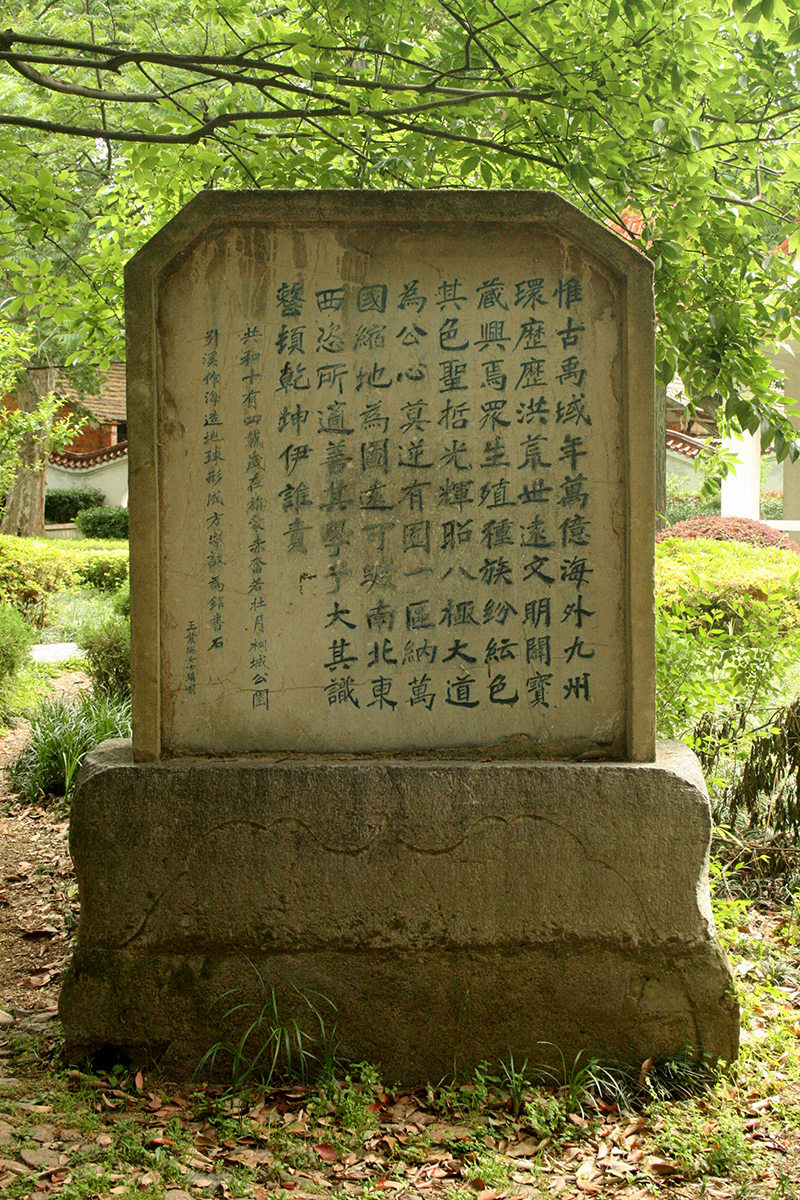 惟古禹域年萬億海外九州
環歷歷洪荒世遠文明闢寶
蔵興焉眾生殖種族紛紜色
其色聖哲光輝昭八極大道
為公心莫逆有園一區納萬
國縮地為圖遠可 南北東
西恣所適善其學子大其識
整頓乾坤伊誰責
共和十有四載歲在旃蒙赤奮若壯月桐城公園
引溪作海造地球形成方宗 為銘書石
王 女士